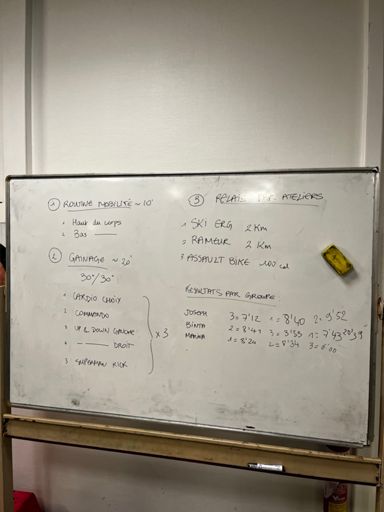 ① ROUTINE MOBILITÉ ~ 10'
1 Haut du corps
2 Bas ———
② GAINAGE ~ 20'
30"/30"
1 CARDIO CHOIX
2 COMMANDO
3 UP & DOWN GAUCHE
4 ——— DROIT
5 SUPERMAN KICK
x 3
③ RELAIS PAR ATELIERS
1 SKI ERG 2 Km
2 RAMEUR 2 Km
3 ASSAULT BIKE 100 cal
RESULTATS PAR GROUPE
JOSEPH 3 = 7'12 1 = 8'40 2 = 9'52
BINTA 2 = 8'47 3 = 3'55 1 = 7'43
1 = 8'24 2 = 8'34